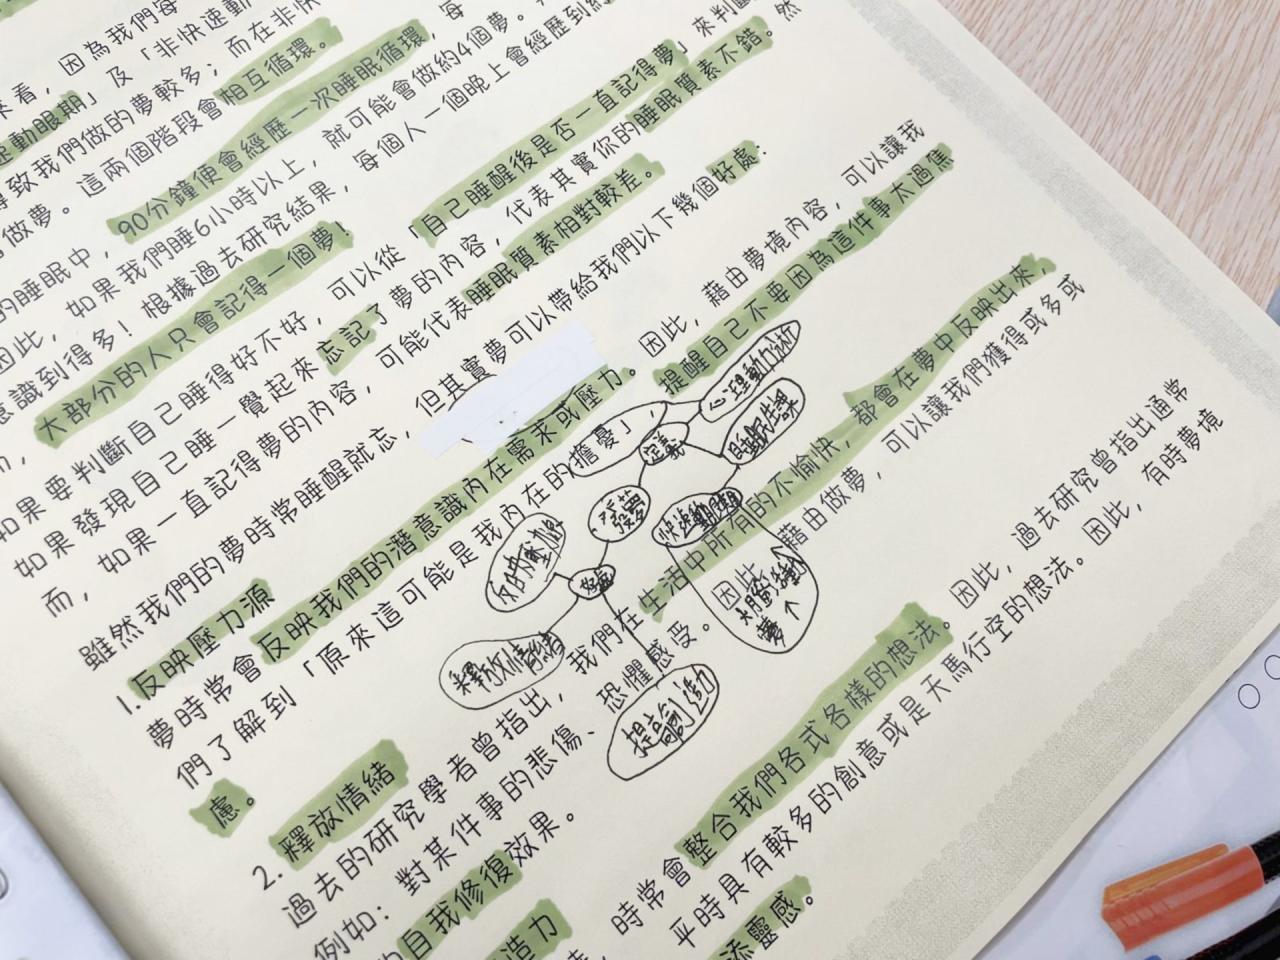 來看，因為我們每
速動眼期」及「非快速動
導致我們做的夢較多；而在非快
做夢。這兩個階段會相互循環。
的睡眠中，90分鐘便會經歷一次睡眠循環，每
因此，如果我們睡6小時以上，就可能會做約4個夢。
意識到得多！根據過去研究結果，每個人一個晚上會經歷到
大部份的人只會記得一個夢！
如果要判斷自己睡得好不好，可以從「自己睡醒後是否一直記得夢」來判斷
如果發現自己睡一覺起來忘記了夢的內容，代表其實你的睡眠質素不錯。然
而，如果一直記得夢的內容，可能代表睡眠質素相對較差。
雖然我們的夢時常睡醒就忘，但其實夢可以帶給我們以下幾個好處：
1.反映壓力源
夢時常會反映我們的潛意識內在需求或壓力。因此，藉由夢境內容，可以讓我
們了解到「原來這可能是我內在的擔憂」，提醒自己不要因為這件事太過焦
慮。
2. 釋放情緒
過去的研究學者曾指出，我們在生活中所有的不愉快，都會在夢中反映出來，
例如：對某件事的悲傷、恐懼感受。因此，藉由做夢，可以讓我們獲得或多或
的自我修復效果。
造力
時常會整合我們各式各樣的想法。因此，過去研究曾指出通常
平時具有較多的創意或是天馬行空的想法。因此，有時夢境
添靈感。
心理動力分析
定義
睡眠生理
快速動眼期
大腦活動
夢↑
好處
反映壓力源
釋放情緒
提高創造力